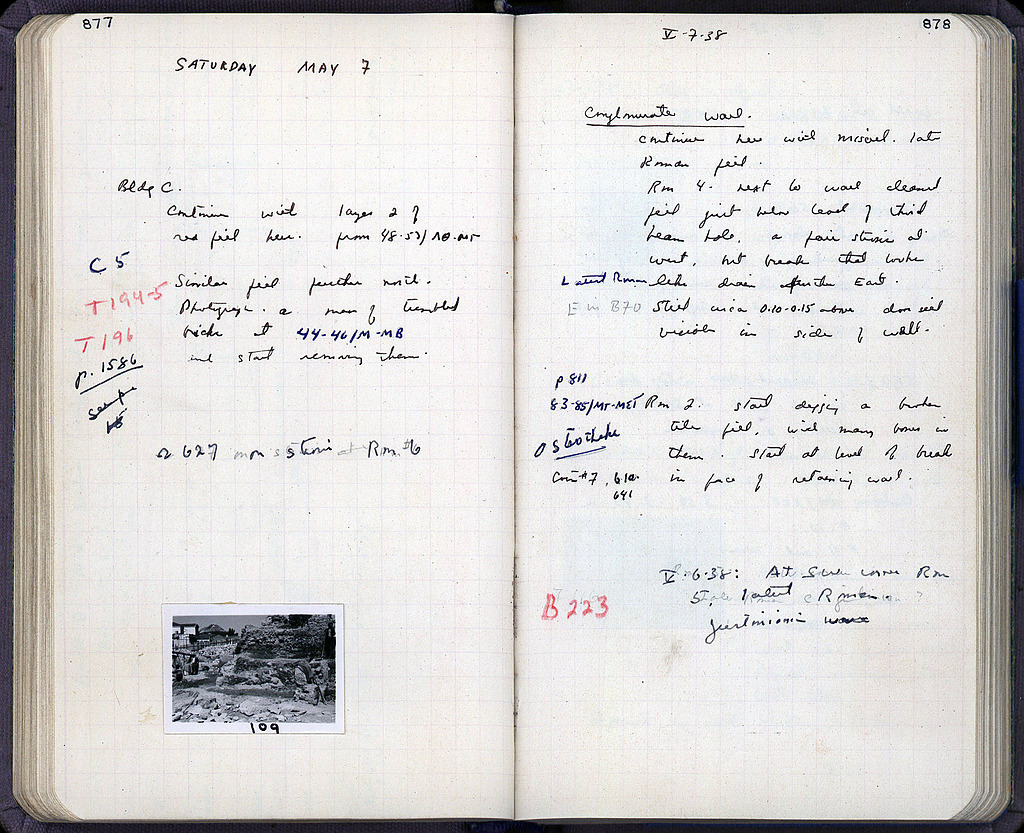 877
SATURDAY MAY 7
Bldg C.
Continue with layer 2 of
red fill here. from 48-52/
C 5
Similar fill further north.
T 194-5
Photograph a mass of tumbled
T 196
bricks at 44-46/M-MB
p. 1586
and start removing them.
Sample
Ω 627 Rm #6
109
878
V-7-38
Conglomerate wall.
Continue here with late
Roman fill.
Rm 4. next to wall cleaned
fill just below level of third
beam hole. a fair at
west, but break that looks
Latest Roman like drain further East.
E in B70 Still circa 0.10-0.15 above door sill
visible in side of wall.
p 811
83-85/MT-MET Rm 2. start digging a broken
Osteotheke tile fill, with many bones in
them. Start at level of break
Coin #7, 610. in face of retaining wall.
641
V-6-38: At corner Rm
5, latest Roman
B 223
Justinianic